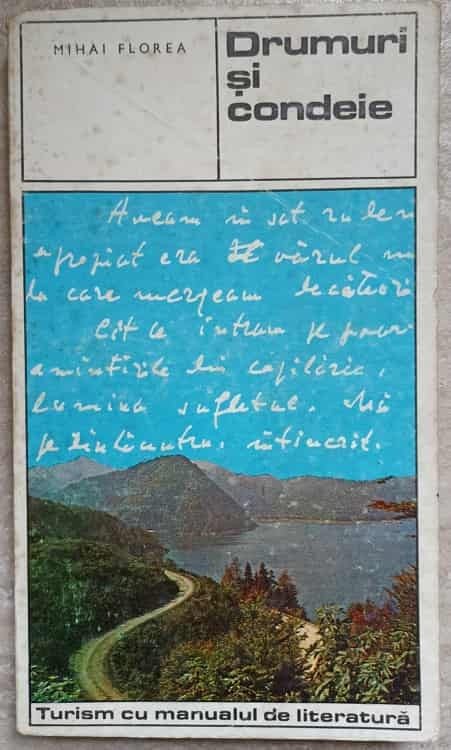 MIHAI FLOREA
Drumuri
și
condeie
Aveam în sat rude
apropiat era vărul
la care mergeam
Cît ce intram pe
amintirile din copilărie,
lumina sufletul. Mă
întinerit.
Turism cu manualul de literatură